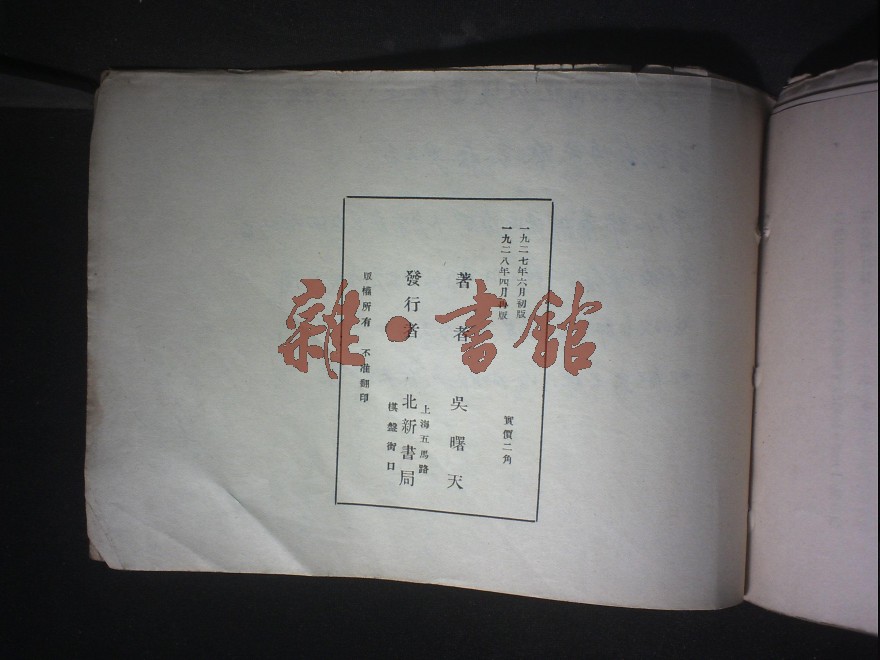 一九二七年六月初版
一九二八年四月再版
實價二角
著者 吳曙天
發行者 北新書局
上海五馬路
棋盤街口
版權所有 不准翻印
雜·書館